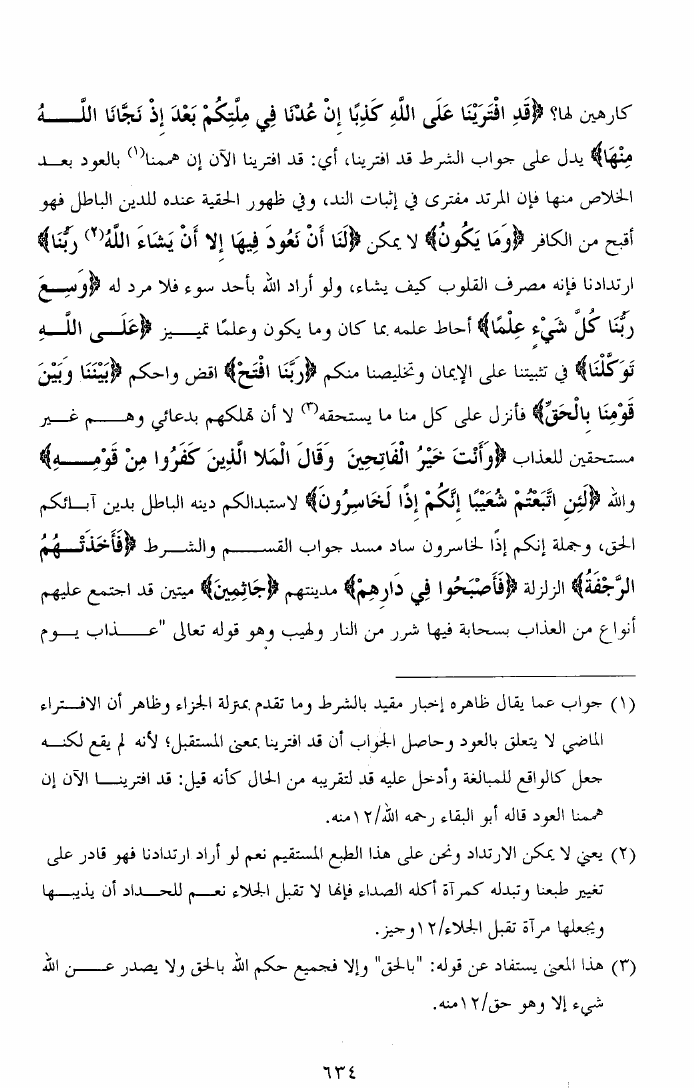 كارهين لها؟ ﴿قَدِ افْتَرَيْنَا عَلَى اللَّهِ كَذِبًا إِنْ عُدْنَا فِي مِلَّتِكُمْ بَعْدَ إِذْ نَجَّانَا اللَّهُ
مِنْهَا﴾ يدل على جواب الشرط قد افترينا، أي: قد افترينا الآن إن هممنا(١) بالعود بعد
الخلاص منها فإن المرتد مفترى في إثبات الند، وفي ظهور الحقية عنده للدين الباطل فهو
أقبح من الكافر ﴿وَمَا يَكُونُ﴾ لا يمكن ﴿لَنَا أَنْ نَعُودَ فِيهَا إِلا أَنْ يَشَاءَ اللَّهُ(٢) رَبُّنَا﴾
ارتدادنا فإنه مصرف القلوب كيف يشاء، ولو أراد الله بأحد سوء فلا مرد له ﴿وَسِعَ
رَبُّنَا كُلَّ شَيْءٍ عِلْمًا﴾ أحاط علمه بما كان وما يكون وعلمًا تمييز ﴿عَلَى اللَّهِ
تَوَكَّلْنَا﴾ في تثبيتنا على الإيمان وتخليصنا منكم ﴿رَبَّنَا افْتَحْ﴾ اقض واحكم ﴿بَيْنَنَا وَبَيْنَ
قَوْمِنَا بِالْحَقِّ﴾ فأنزل على كل منا ما يستحقه(٣) لا أن تهلكهم بدعائي وهم غير
مستحقين للعذاب ﴿وَأَنْتَ خَيْرُ الْفَاتِحِينَ وَقَالَ الْمَلا الَّذِينَ كَفَرُوا مِنْ قَوْمِهِ﴾
والله ﴿لَئِنِ اتَّبَعْتُمْ شُعَيْبًا إِنَّكُمْ إِذًا لَخَاسِرُونَ﴾ لاستبدالكم دينه الباطل بدين آبائكم
الحق، وجملة إنكم إذًا لخاسرون ساد مسد جواب القسم والشرط ﴿فَأَخَذَتْهُمُ
الرَّجْفَةُ﴾ الزلزلة ﴿فَأَصْبَحُوا فِي دَارِهِمْ﴾ مدينتهم ﴿جَاثِمِينَ﴾ ميتين قد اجتمع عليهم
أنواع من العذاب بسحابة فيها شرر من النار ولهيب وهو قوله تعالى "عذاب يوم
(١) جواب عما يقال ظاهره إخبار مقيد بالشرط وما تقدم بمنزلة الجزاء وظاهر أن الافتراء
الماضي لا يتعلق بالعود وحاصل الجواب أن قد افترينا بمعنى المستقبل؛ لأنه لم يقع لكنه
جعل كالواقع للمبالغة وأدخل عليه قد لتقريبه من الحال كأنه قيل: قد افترينا الآن إن
هممنا العود قاله أبو البقاء رحمه الله/١٢منه.
(٢) يعني لا يمكن الارتداد ونحن على هذا الطبع المستقيم نعم لو أراد ارتدادنا فهو قادر على
تغيير طبعنا وتبدله كمرآة أكله الصداء فإنها لا تقبل الجلاء نعم للحداد أن يذيبها
ويجعلها مرآة تقبل الجلاء/١٢وحيز.
(٣) هذا المعنى يستفاد عن قوله: "بالحق" وإلا فجميع حكم الله بالحق ولا يصدر عن الله
شيء إلا وهو حق/١٢منه.
٦٣٤